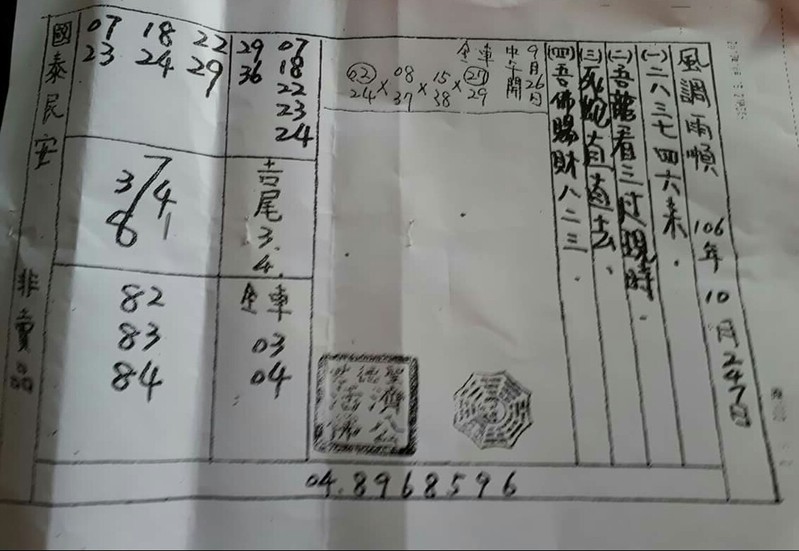 風調雨順 106年10月24日
(一)二八三七四六來.
(二)吾龍看三過現時.
(三)死蛇直直去.
(四)吾佛賜財八二三.
9月26日
中5開
全車
02 × 08 × 15 × 27
24 37 38 29
29 07
36 18
22
23
24
07 18 22
23 24 29
吉尾3.4.
3 7 4
8 1
全車
03
04
82
83
84
聖德濟公活佛
國泰民安 非賣品
04.8968596